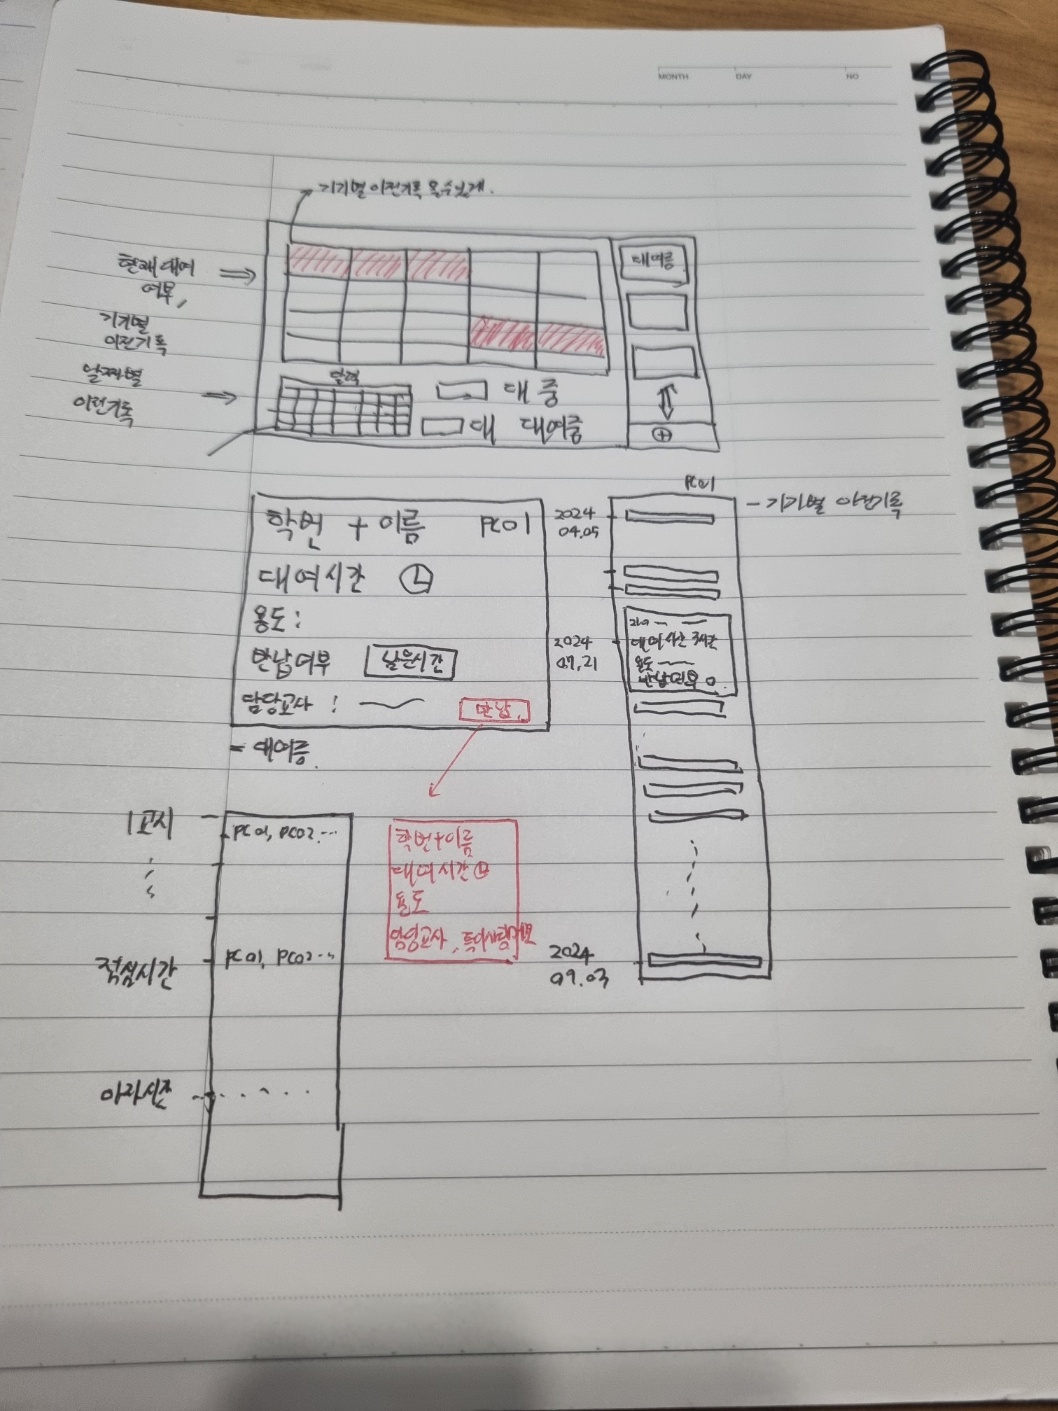 MONTH DAY NO
기기별 이전기록 볼수있게.
현재 대여
여부,
기기별
이전기록
날짜별
이전기록
대여중
달력
대 중
대 대여중
학번 + 이름 PC01
대여시간
용도:
반납여부 남은시간
담당교사 :
반납
- 대여중
PC01
- 기기별 이전기록
2024
04.05
2024
07.21
대여시간
용도
반납여부 O
2024
09.03
1교시
PC01, PC02...
점심시간
PC01, PC02...
야자시간
학번+이름
대여시간
용도
담당교사, 특이사항메모